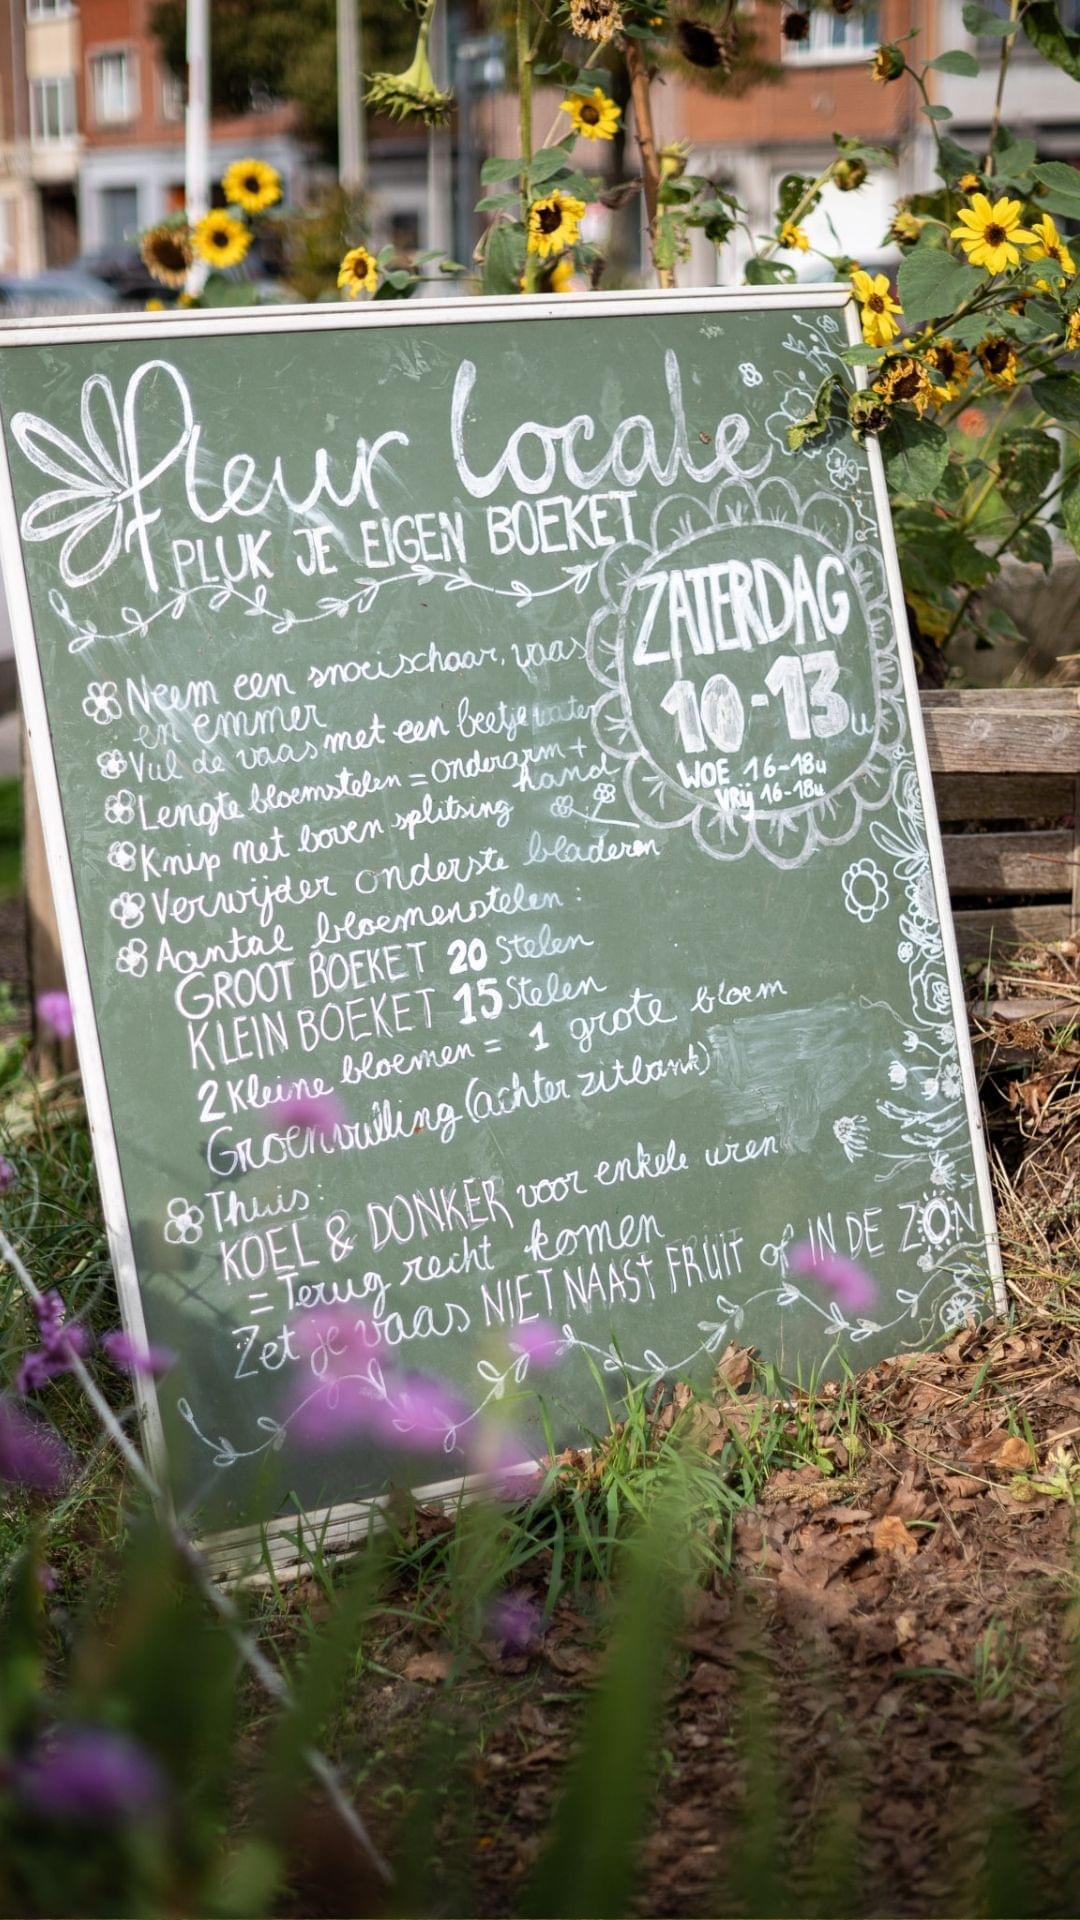 fleur locale
PLUK JE EIGEN BOEKET
ZATERDAG
10-13u
WOE 16-18u
VRIJ 16-18u
Neem een snoeischaar, vaas
en emmer
Vul de vaas met een beetje water
Lengte bloemstelen = onderarm +
hand
Knip net boven splitsing
Verwijder onderste bladeren
Aantal bloemenstelen:
GROOT BOEKET 20 stelen
KLEIN BOEKET 15 stelen
2 kleine bloemen = 1 grote bloem
Groenvulling (achter zitbank)
Thuis:
KOEL & DONKER voor enkele uren
= Terug recht komen
Zet je vaas NIET NAAST FRUIT of IN DE ZON